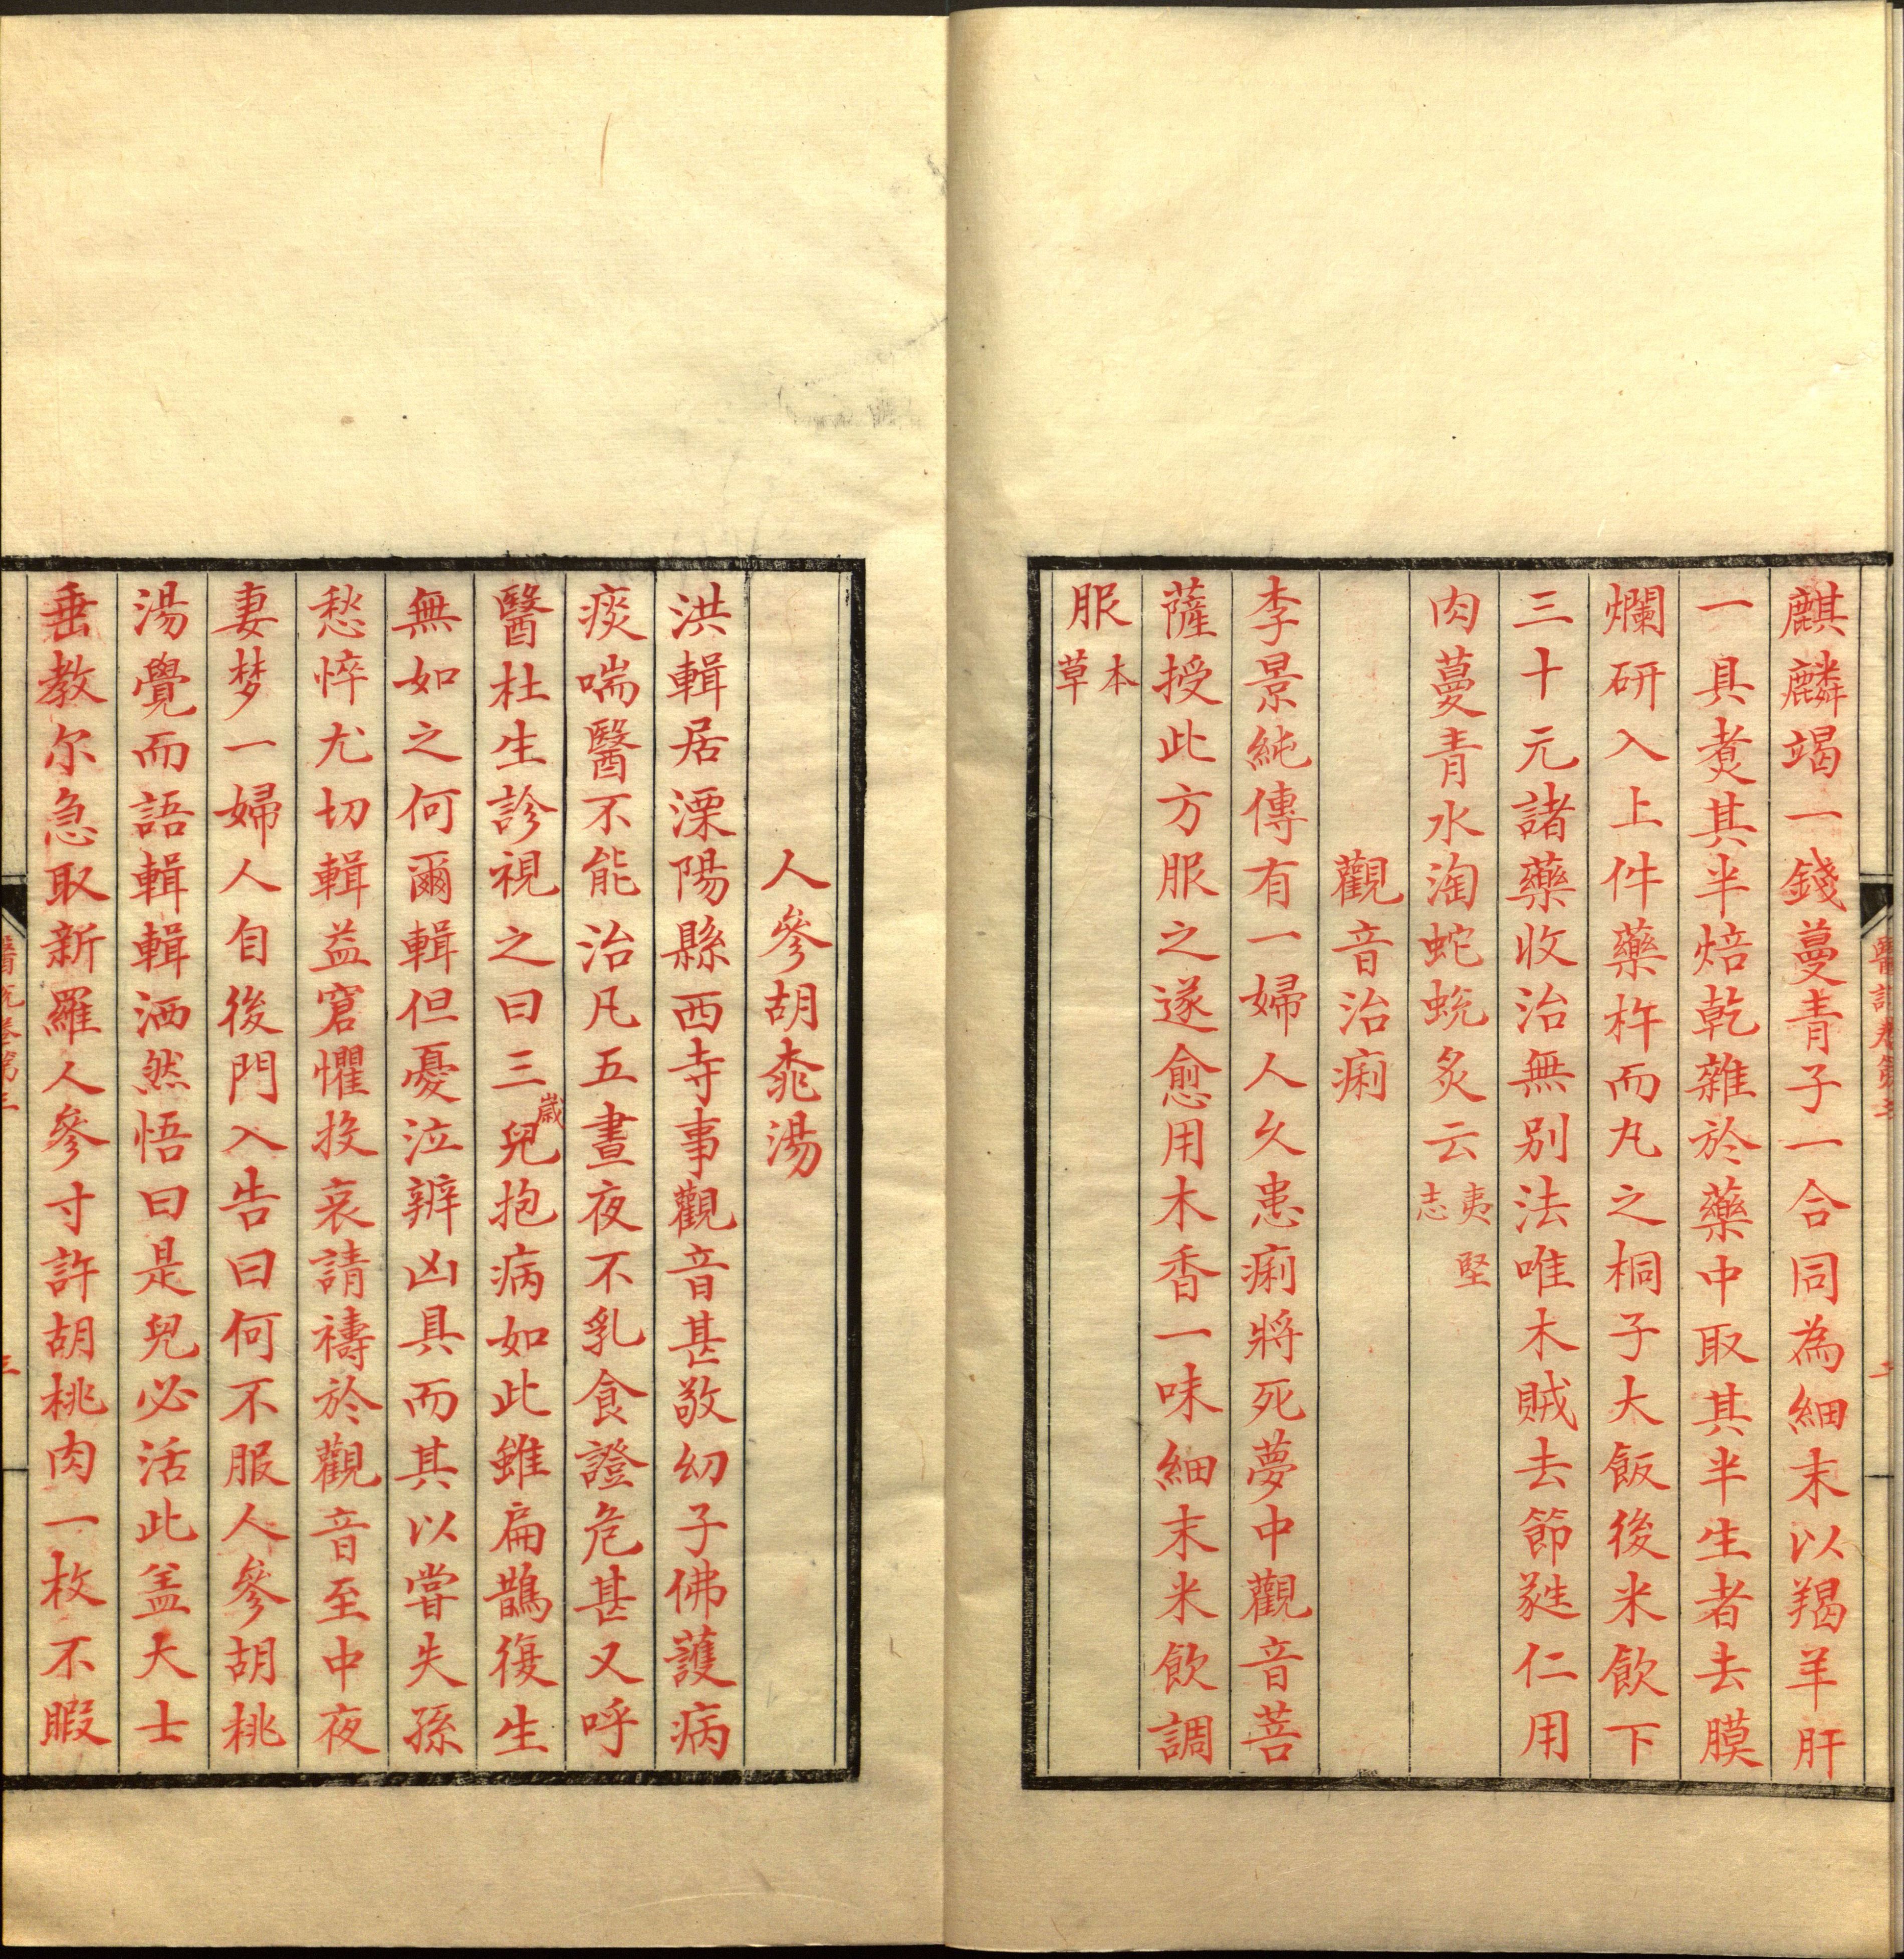 麒麟竭一錢蔓青子一合同為細末以羯羊肝
一具煑其半焙乾雜於藥中取其半生者去膜
爛研入上件藥杵而丸之桐子大飯後米飲下
三十元諸藥收治無別法唯木賊去節蕤仁用
肉蔓青水淘蛇蛻炙云夷堅志
觀音治痢
李景純傳有一婦人久患痢將死夢中觀音菩
薩授此方服之遂愈用木香一味細末米飲調
服本草
人參胡桃湯
洪輯居溧陽縣西寺事觀音甚敬幼子佛護病
痰喘醫不能治凡五晝夜不乳食證危甚又呼
醫杜生診視之曰三歲兒抱病如此雖扁鵲復生
無如之何爾輯但憂泣辨凶具而其以嘗失孫
愁悴尤切輯益窘懼投哀請禱於觀音至中夜
妻梦一婦人自後門入告曰何不服人參胡桃
湯覺而語輯輯洒然悟曰是兒必活此盖大士
垂教尔急取新羅人參寸許胡桃肉一枚不暇